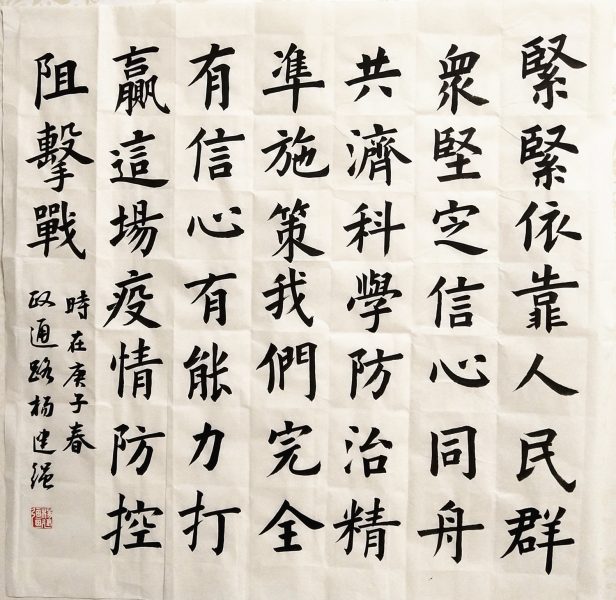 緊緊依靠人民群
衆堅定信心同舟
共濟科學防治精
準施策我們完全
有信心有能力打
贏這場疫情防控
阻擊戰
時在庚子春
政通路楊建強